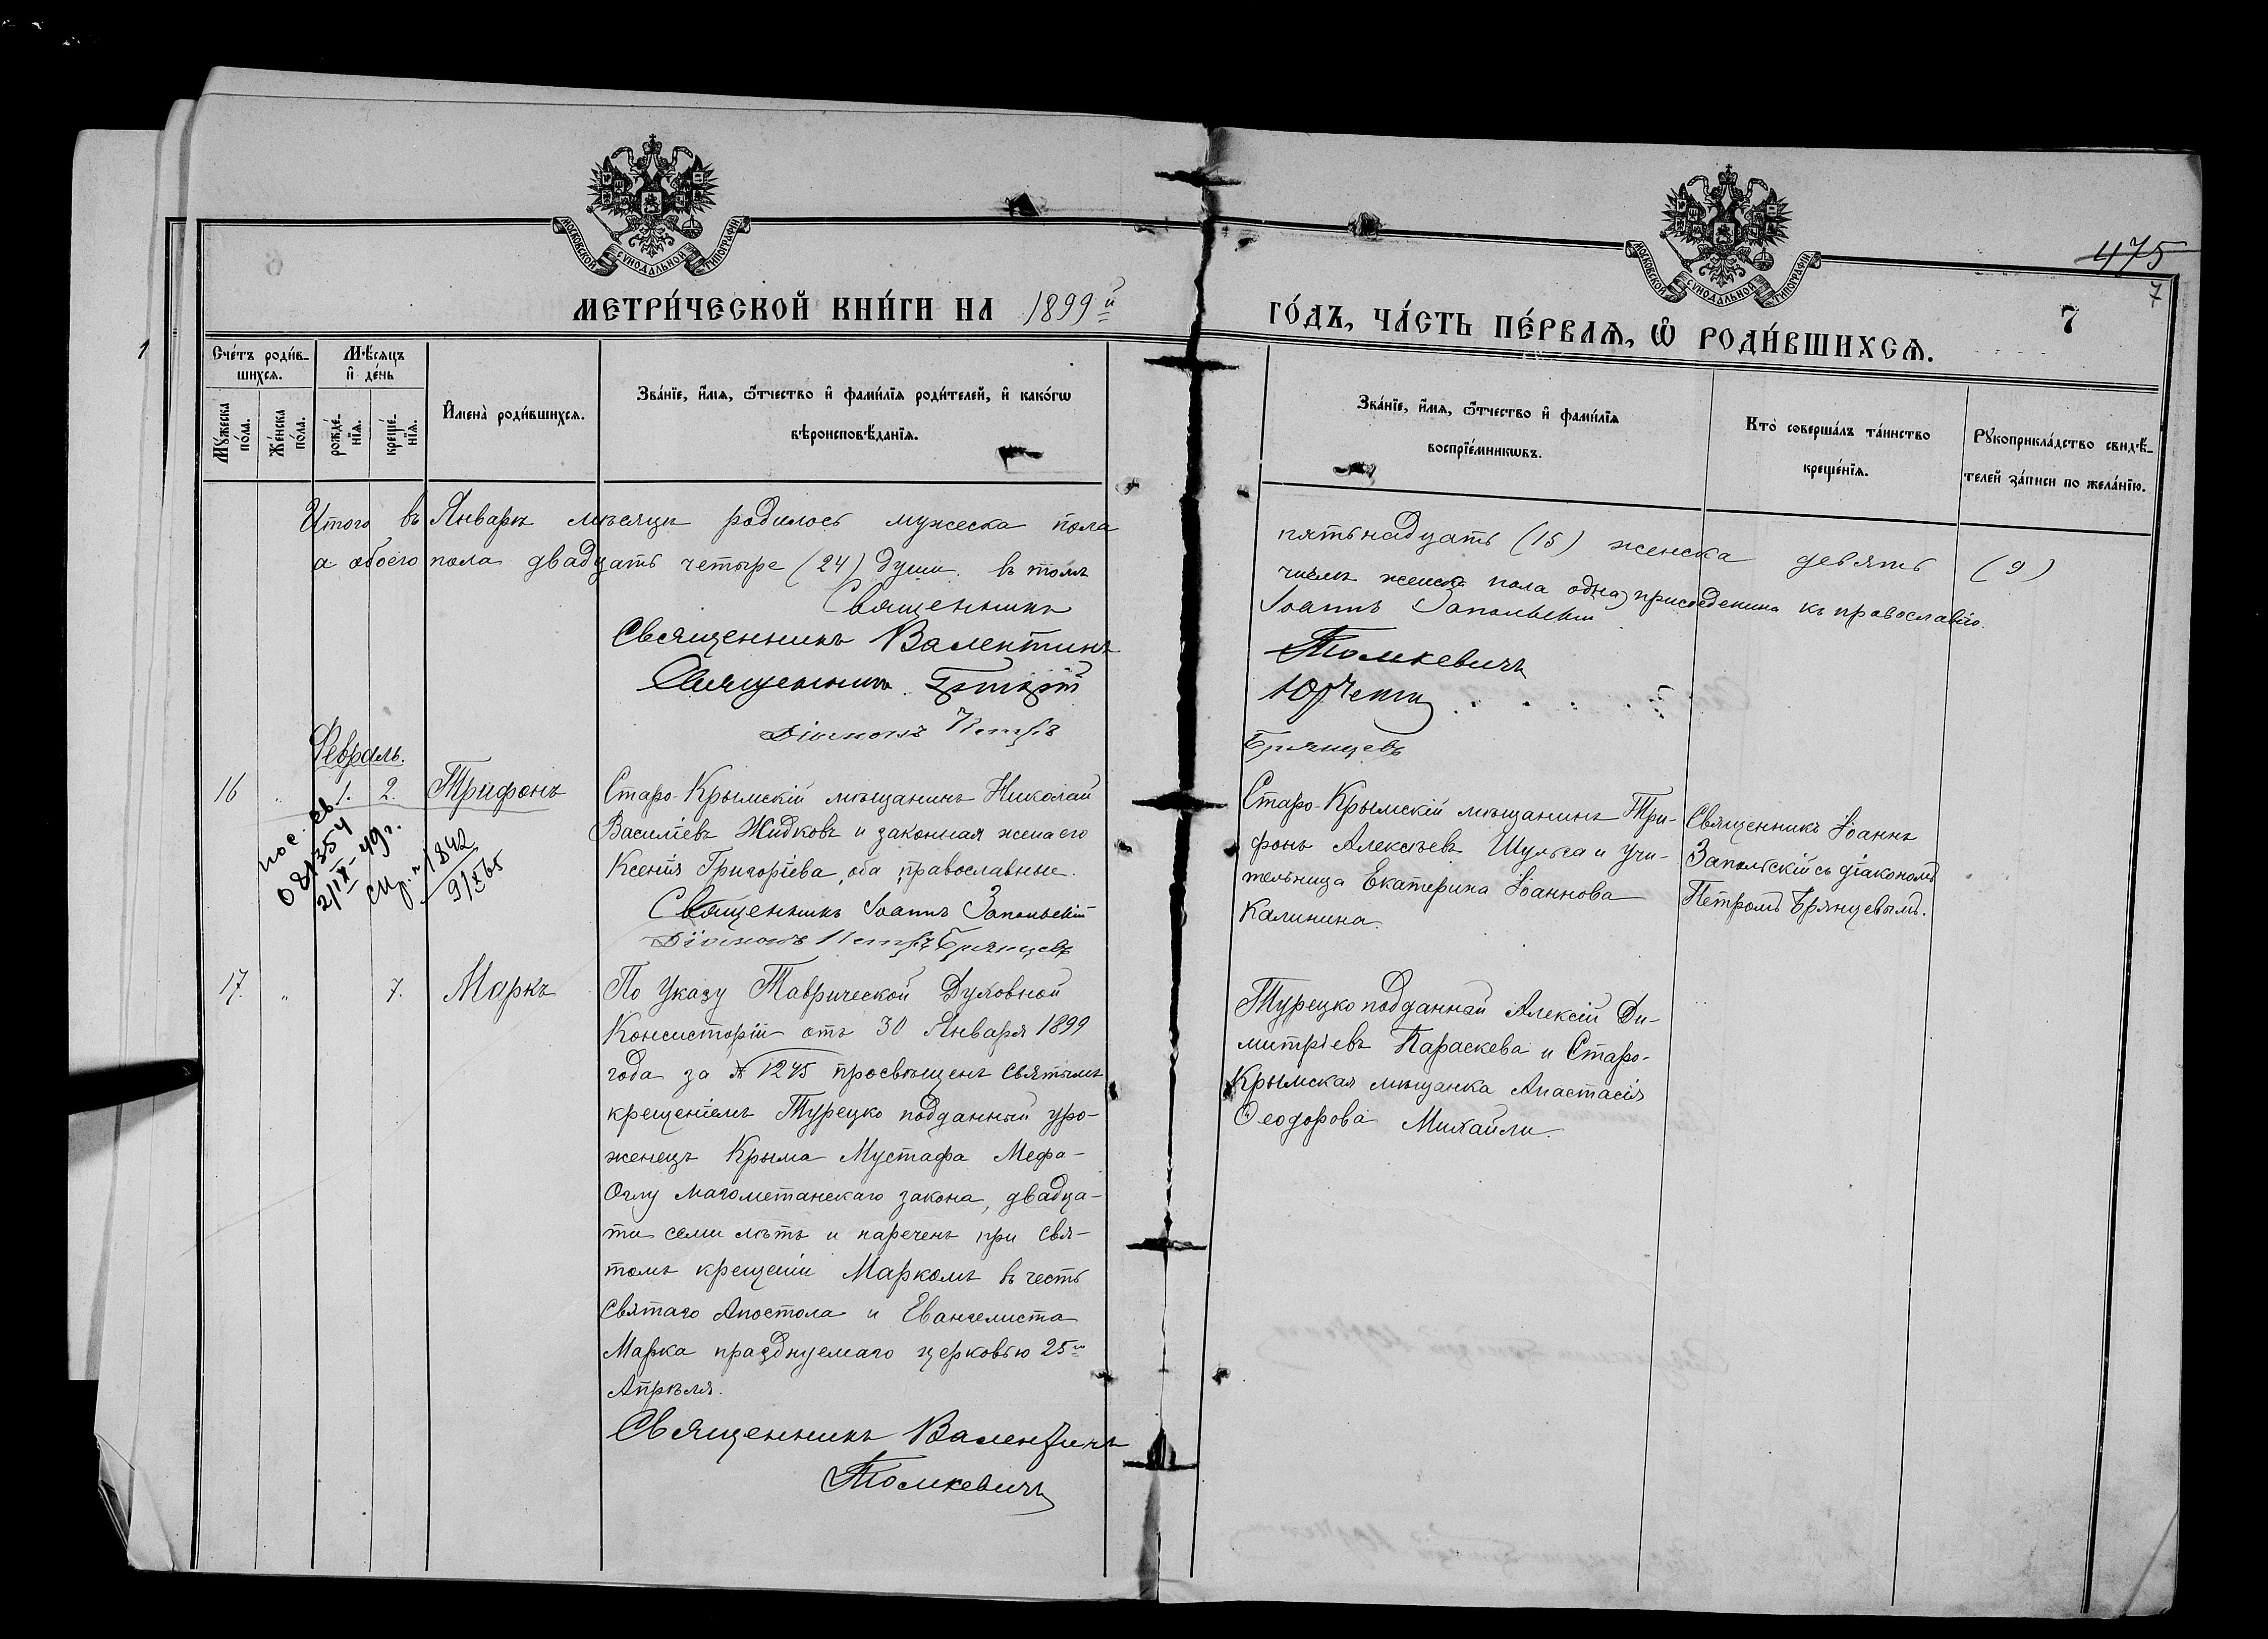 МОСКОВСКОЙ СУНОДАЛЬНОЙ ТИПОГРАФІИ
МОСКОВСКОЙ СУНОДАЛЬНОЙ ТИПОГРАФІИ
475
7
7
МЕТРИ́ЧЕСКОЙ КНИ́ГИ НА 1899й
ГО́ДЪ, ЧА́СТЬ ПЕ́РВАѦ, Ѡ҆ РОДИ́ВШИХСѦ.
1
Сче́тъ роди́в-
шихсѧ.
Мꙋжеска по́ла.
Же́нска по́ла.
Мѣ́сѧцъ
и҆ де́нь
рожде́-нїѧ.
креще́-нїѧ.
И҆мена̀ роди́вшихсѧ.
Зва́нїе, и҆́мѧ, ѻ҆́тчество и҆ фами́лїѧ роди́телей, и҆ како́гѡ
вѣроисповѣ́данїѧ.
Зва́нїе, и҆́мѧ, ѻ҆́тчество и҆ фами́лїѧ
воспрїе́мникѡвъ.
Кто̀ соверша́лъ та́инство
креще́нїѧ.
Рꙋкоприкла́дство свидѣ́-
телей за́писи по жела́нїю.
Итого въ Январѣ мѣсяцѣ родилось мужеска пола
пятьнадцать (15) женска девять (9)
а обоего пола двадцать четыре (24) души. въ томъ
числѣ женска пола одна присоеденина къ православію.
Священникъ
Іоаннъ Запольскій
Священникъ Валентинъ
Томкевичъ
Священникъ
Діаконъ Петръ
Брянцевъ
Февраль.
16 " 1. 2. Трифонъ
Старо-Крымскій мѣщанинъ Николай
Василіевъ Жидковъ и законная жена его
Ксенія Григоріева, оба православные.
Священникъ Іоаннъ Запольскій
Діаконъ Петръ Брянцевъ
Старо-Крымскій мѣщанинъ Три-
фонъ Алексѣевъ Шульга и учи-
тельница Екатерина Іоаннова
Калинина.
Священникъ Іоаннъ
Запольскій съ діакономъ
Петромъ Брянцевымъ.
пос. св
081354
2/IX-49г.
1842
9/X 65
17. " 7. Маркъ
По Указу Таврической Духовной
Консисторіи отъ 30 Января 1899
года за № 1245 просвѣщенъ Святымъ
крещеніемъ Турецко подданный уро-
женецъ Крыма Мустафа Мефа-
Оглу магометанскаго закона, двадца-
ти семи лѣтъ и нареченъ при Свя-
томъ крещеніи Маркомъ въ честь
Святаго Апостола и Евангелиста
Марка празднуемаго церковью 25го
Апрѣля.
Священникъ Валентинъ
Томкевичъ
Турецко подданный Алексій Ди-
митріевъ Параскева и Старо-
Крымская мѣщанка Анастасія
Ѳеодорова Михайли.